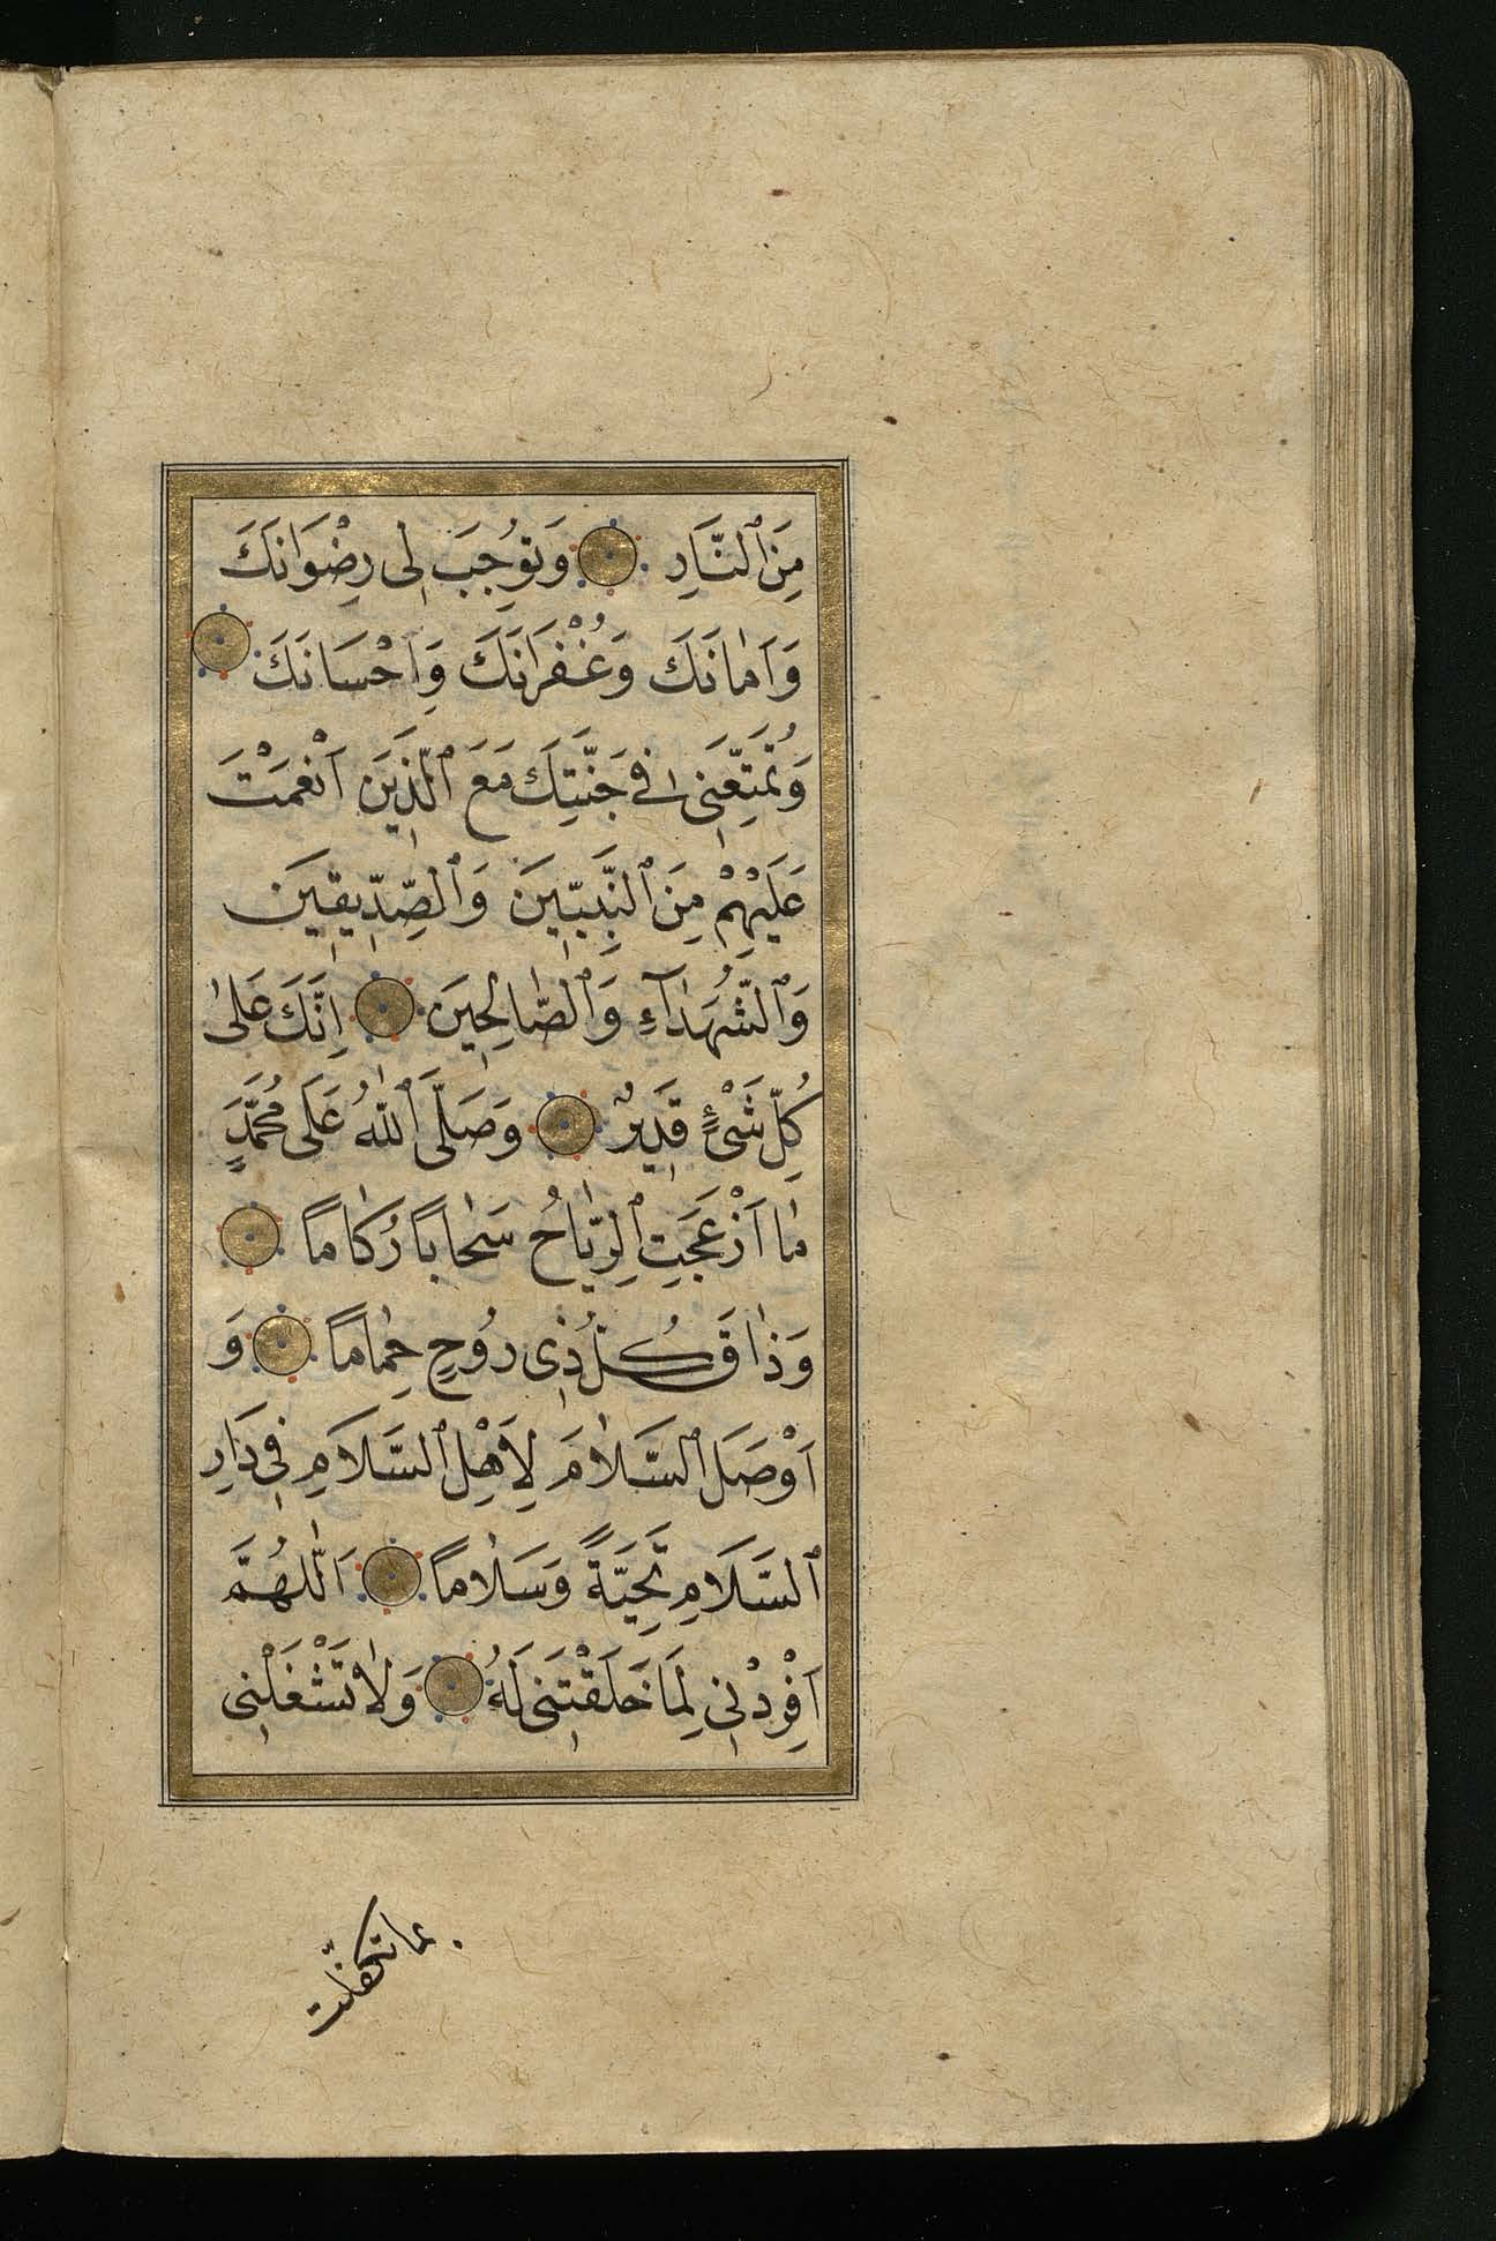 مِنَ ٱلنَّارِ وَتُوجِبَ لِى رِضْوَانَكَ
وَاَمٰانَكَ وَغُفْرَانَكَ وَاِحْسَانَكَ
وَتُمَتِّعَنِى فِى جَنَّتِكَ مَعَ ٱلَّذِينَ اَنْعَمْتَ
عَلَيْهِمْ مِنَ ٱلنَّبِيّٖينَ وَٱلصِّدِّيقِينَ
وَٱلشُّهَدٰآءِ وَٱلصّٰالِحِينَ اِنَّكَ عَلىٰ
كُلِّ شَىْءٍ قَدِيرٌ وَصَلَّى ٱللّٰهُ عَلَى مُحَمَّدٍ
مٰا اَزْعَجَتِ ٱلرِّيٰاحُ سَحٰابًا رُكٰامًا
وَذٰاقَ كُلُّ ذِى رُوحٍ حِمٰامًا وَ
اَوْصَلَ ٱلسَّلٰامَ لِاَهْلِ ٱلسَّلَامِ فِى دَارِ
ٱلسَّلَامِ تَحِيَّةً وَسَلٰامًا اَللّٰهُمَّ
اَفْرِدْنِى لِمَا خَلَقْتَنِى لَهُ وَلٰا تَشْغَلْنِى
بما تكفّلت